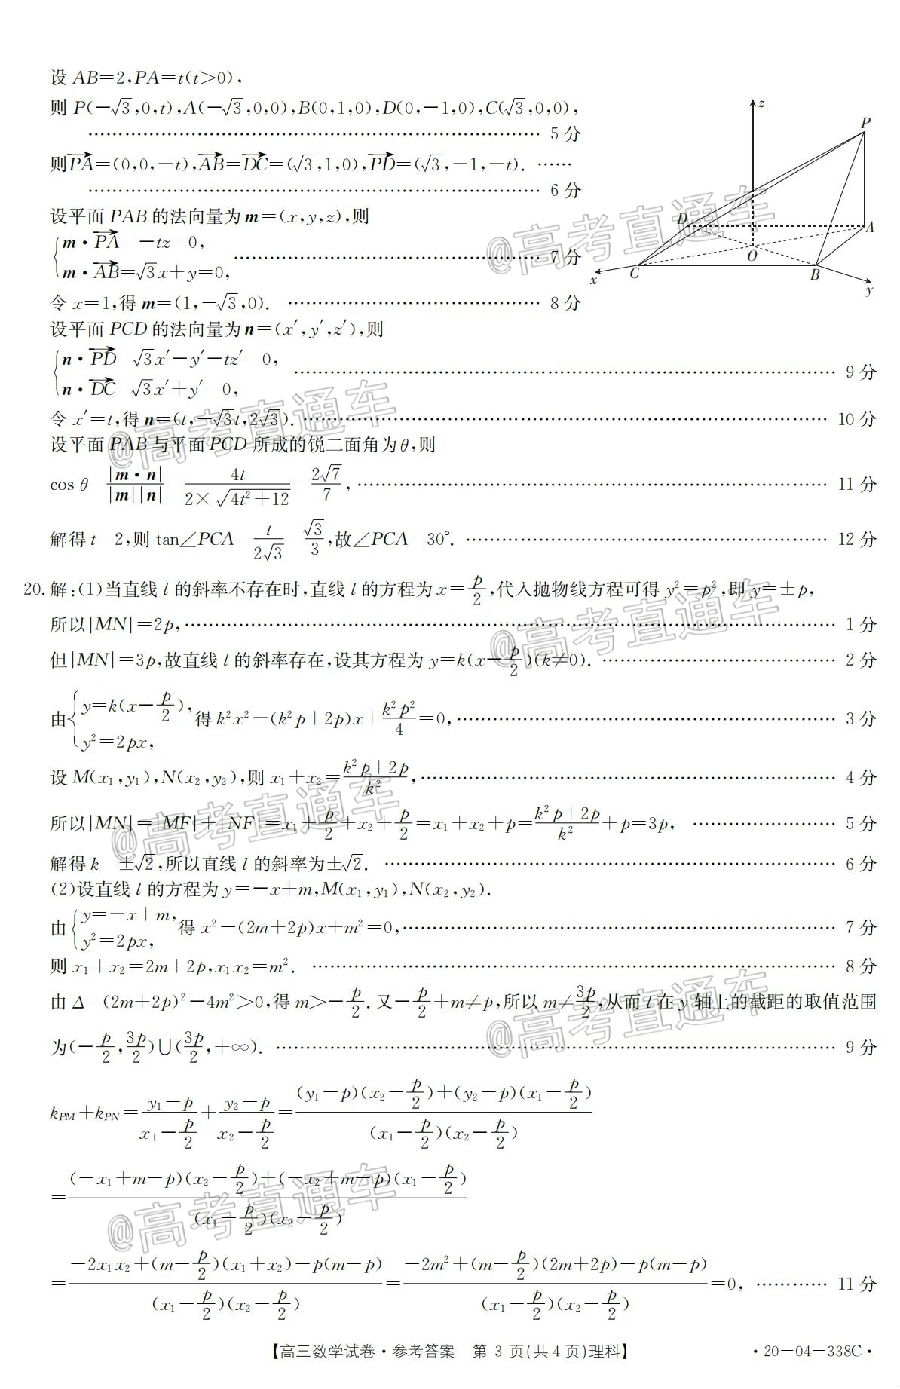 设 AB=2,PA=t(t>0),
则 P(-√3,0,t),A(-√3,0,0),B(0,1,0),D(0,-1,0),C(√3,0,0),
…… 5 分
则PA→=(0,0,-t),AB→=DC→=(√3,1,0),PD→=(√3,-1,-t). ……
…… 6 分
设平面 PAB 的法向量为 m=(x,y,z),则
{m·PA→ -tz 0,
m·AB→=√3x+y=0, …… 7 分
令 x=1,得 m=(1,-√3,0). …… 8 分
设平面 PCD 的法向量为 n=(x′,y′,z′),则
{n·PD→ √3x′-y′-tz′ 0, …… 9 分
n·DC→ √3x′+y′ 0,
令 x′=t,得 n=(t,-√3t,2√3). …… 10 分
设平面 PAB 与平面 PCD 所成的锐二面角为 θ,则
cos θ |m·n|/|m||n| 4t/(2×√(4t²+12)) 2√7/7, …… 11 分
解得 t 2,则 tan∠PCA t/2√3 √3/3,故∠PCA 30°. …… 12 分
z
P
D
A
O
C
B
x
y
20. 解:(1)当直线 l 的斜率不存在时,直线 l 的方程为 x=p/2,代入抛物线方程可得 y²=p²,即 y=±p,
所以|MN|=2p, …… 1 分
但|MN|=3p,故直线 l 的斜率存在,设其方程为 y=k(x-p/2)(k≠0). …… 2 分
由{y=k(x-p/2),
y²=2px, 得 k²x²-(k²p+2p)x+k²p²/4=0, …… 3 分
设 M(x₁,y₁),N(x₂,y₂),则 x₁+x₂=(k²p+2p)/k², …… 4 分
所以|MN|=|MF|+|NF|=x₁+p/2+x₂+p/2=x₁+x₂+p=(k²p+2p)/k²+p=3p, …… 5 分
解得 k ±√2,所以直线 l 的斜率为±√2. …… 6 分
(2)设直线 l 的方程为 y=-x+m,M(x₁,y₁),N(x₂,y₂).
由{y=-x+m,
y²=2px, 得 x²-(2m+2p)x+m²=0, …… 7 分
则 x₁+x₂=2m+2p,x₁x₂=m². …… 8 分
由 Δ (2m+2p)²-4m²>0,得 m>-p/2. 又-p/2+m≠p,所以 m≠3p/2,从而 l 在 y 轴上的截距的取值范围
为(-p/2,3p/2)∪(3p/2,+∞). …… 9 分
k_PM+k_PN=(y₁-p)/(x₁-p/2)+(y₂-p)/(x₂-p/2)=((y₁-p)(x₂-p/2)+(y₂-p)(x₁-p/2))/((x₁-p/2)(x₂-p/2))
=((-x₁+m-p)(x₂-p/2)+(-x₂+m-p)(x₁-p/2))/((x₁-p/2)(x₂-p/2))
=(-2x₁x₂+(m-p/2)(x₁+x₂)-p(m-p))/((x₁-p/2)(x₂-p/2))=(-2m²+(m-p/2)(2m+2p)-p(m-p))/((x₁-p/2)(x₂-p/2))=0, …… 11 分
【高三数学试卷·参考答案 第 3 页(共 4 页)理科】 ·20-04-338C·
@高考直通车
@高考直通车
@高考直通车
@高考直通车
@高考直通车
@高考直通车